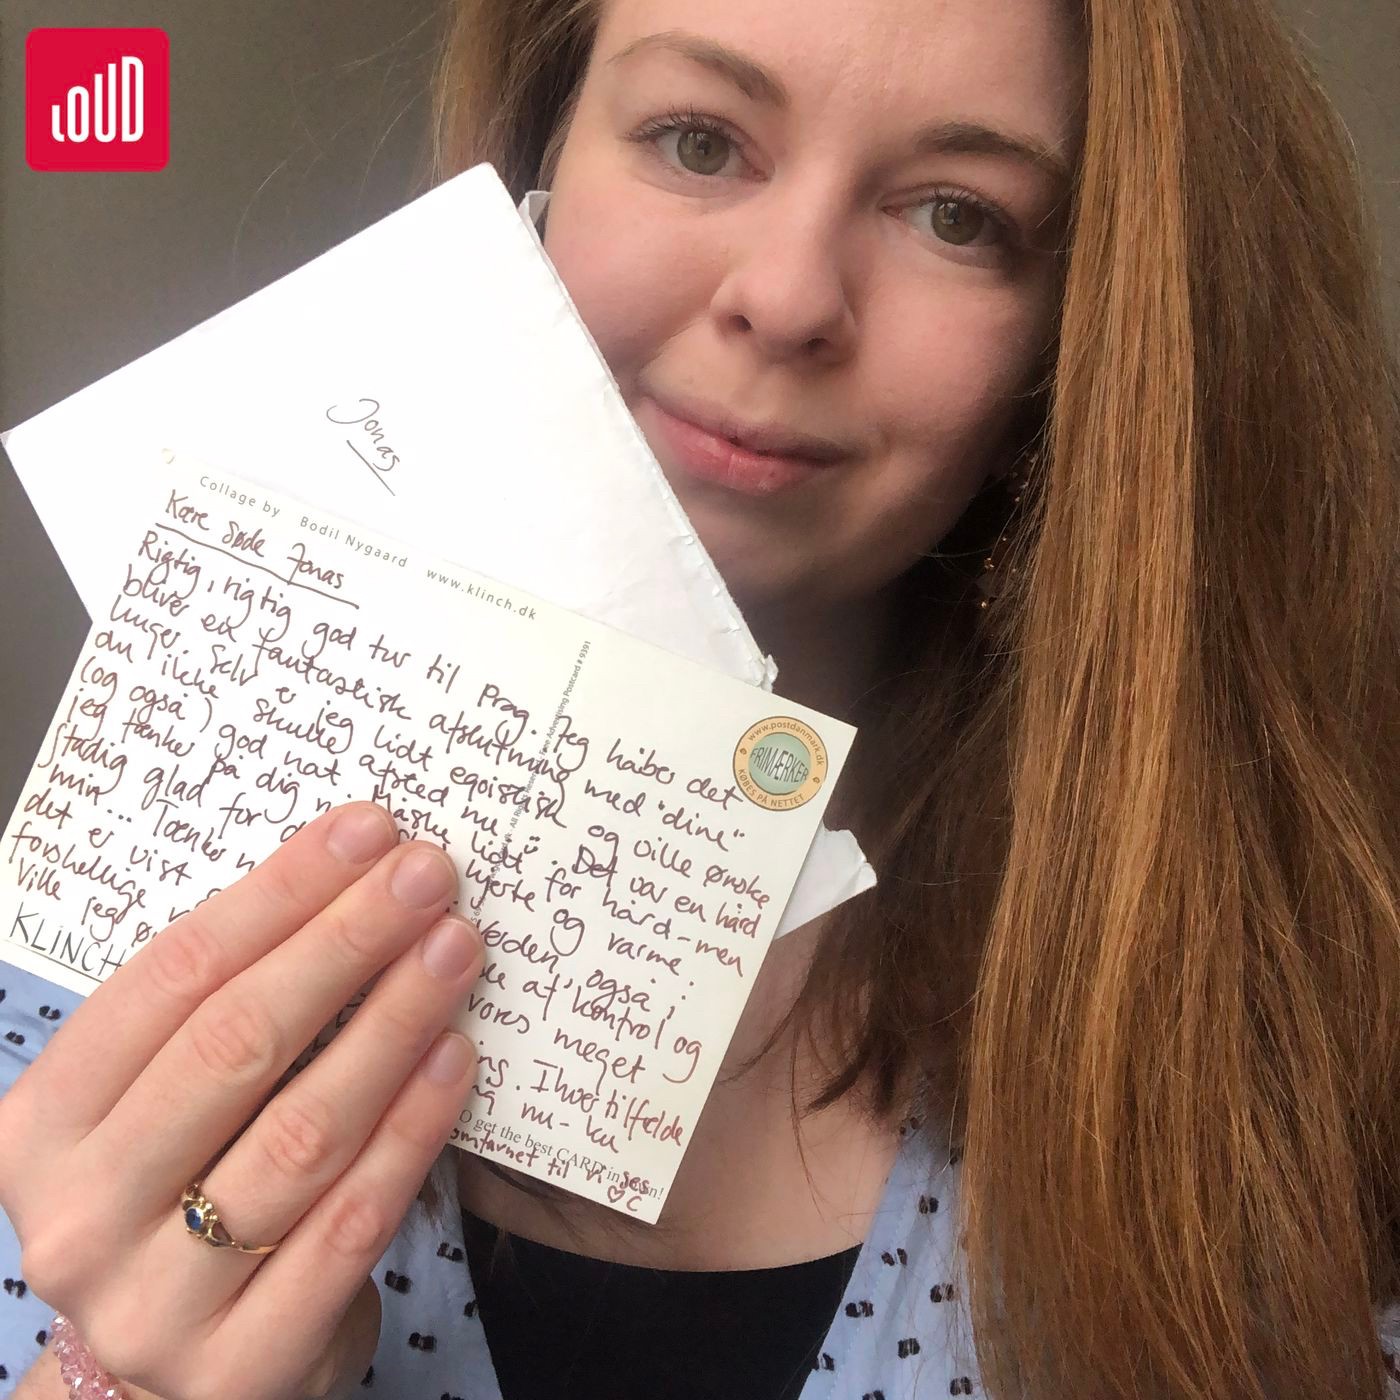 LOUD
Jonas
Collage by Bodil Nygaard www.klinch.dk
Kære søde Jonas
Rigtig, rigtig god tur til Prag. Jeg håber det
bliver en fantastisk afslutning med "dine"
unger. Selv er jeg lidt egoistisk og ville ønske
du ikke skulle afsted nu. Det var en hård
(og også) god nat. Måske lidt for hård - men
jeg tænker på dig hjerte og varme;
Stadig glad for verden også i
min... Tænker af kontrol og
det er vist vores meget
forskellige Ihvertilfælde
Ville jeg nu - ku
KLINCH
omfavnet til vi ses
♡ C
Free Advertising Postcard # 9391
www.postdanmark.dk
FRIMÆRKER
KØBES PÅ NETTET
GO get the best CARD in town!